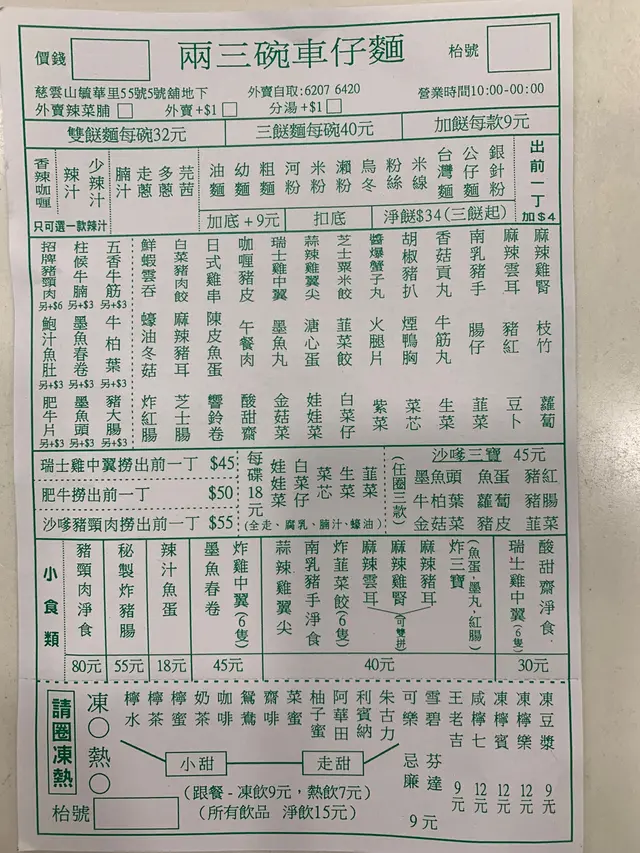 價錢
兩三碗車仔麵
枱號
慈雲山毓華里55號5號舖地下
外賣自取:6207 6420
營業時間10:00-00:00
外賣辣菜脯
外賣+$1
分湯+$1
雙餸麵每碗32元
三餸麵每碗40元
加餸每款9元
香辣咖喱
辣汁
少辣汁
只可選一款辣汁
腩汁
走蔥
多蔥
芫茜
油麵
幼麵
粗麵
河粉
米粉
瀨粉
烏冬
粉絲
米線
台灣麵
公仔麵
銀針粉
出前一丁
加$4
加底+9元
扣底
淨餸$34(三餸起)
招牌豬頸肉 另+$6
柱候牛腩 另+$3
五香牛筋 另+$3
鮮蝦雲吞
白菜豬肉餃
日式雞串
咖喱豬皮
瑞士雞中翼
蒜辣雞翼尖
芝士粟米餃
醬爆蟹子丸
胡椒豬扒
香菇貢丸
南乳豬手
麻辣雲耳
麻辣雞腎
鮑汁魚肚 另+$3
墨魚春卷 另+$3
牛柏葉 另+$3
蠔油冬菇
麻辣豬耳
陳皮魚蛋
午餐肉
墨魚丸
溏心蛋
韮菜餃
火腿片
煙鴨胸
牛筋丸
腸仔
豬紅
枝竹
肥牛片 另+$3
墨魚頭 另+$3
豬大腸 另+$3
炸紅腸
芝士腸
響鈴卷
酸甜齋
金菇菜
娃娃菜
白菜仔
紫菜
菜芯
生菜
韮菜
豆卜
蘿蔔
瑞士雞中翼撈出前一丁 $45
肥牛撈出前一丁 $50
沙嗲豬頸肉撈出前一丁 $55
每碟18元
娃娃菜
白菜菜
菜芯
生菜
韮菜
(全走、腐乳、腩汁、蠔油)
(任圈三款)
沙嗲三寶 45元
墨魚頭 魚蛋 豬紅
牛柏葉 蘿蔔 豬腸
金菇菜 豬皮 韮菜
小食類
豬頸肉淨食
80元
秘製炸豬腸
55元
辣汁魚蛋
18元
墨魚春卷
炸雞中翼(6隻)
45元
蒜辣雞翼尖
南乳豬手淨食
炸韮菜餃(6隻)
麻辣雲耳
麻辣雞腎
麻辣豬耳
(可雙拼)
炸三寶
(魚蛋、墨丸、紅腸)
40元
瑞士雞中翼(6隻)
酸甜齋淨食
30元
請圈凍熱
凍
熱
檸水
檸茶
檸蜜
奶茶
咖啡
鴛鴦
齋啡
菜蜜
柚子蜜
阿華田
利賓納
朱古力
小甜
走甜
可樂
忌廉
雪碧
芬達
9元
王老吉
9元
咸檸七
12元
凍檸賓
12元
凍檸樂
12元
凍豆漿
9元
(跟餐 - 凍飲9元，熱飲7元)
(所有飲品 淨飲15元)
枱號